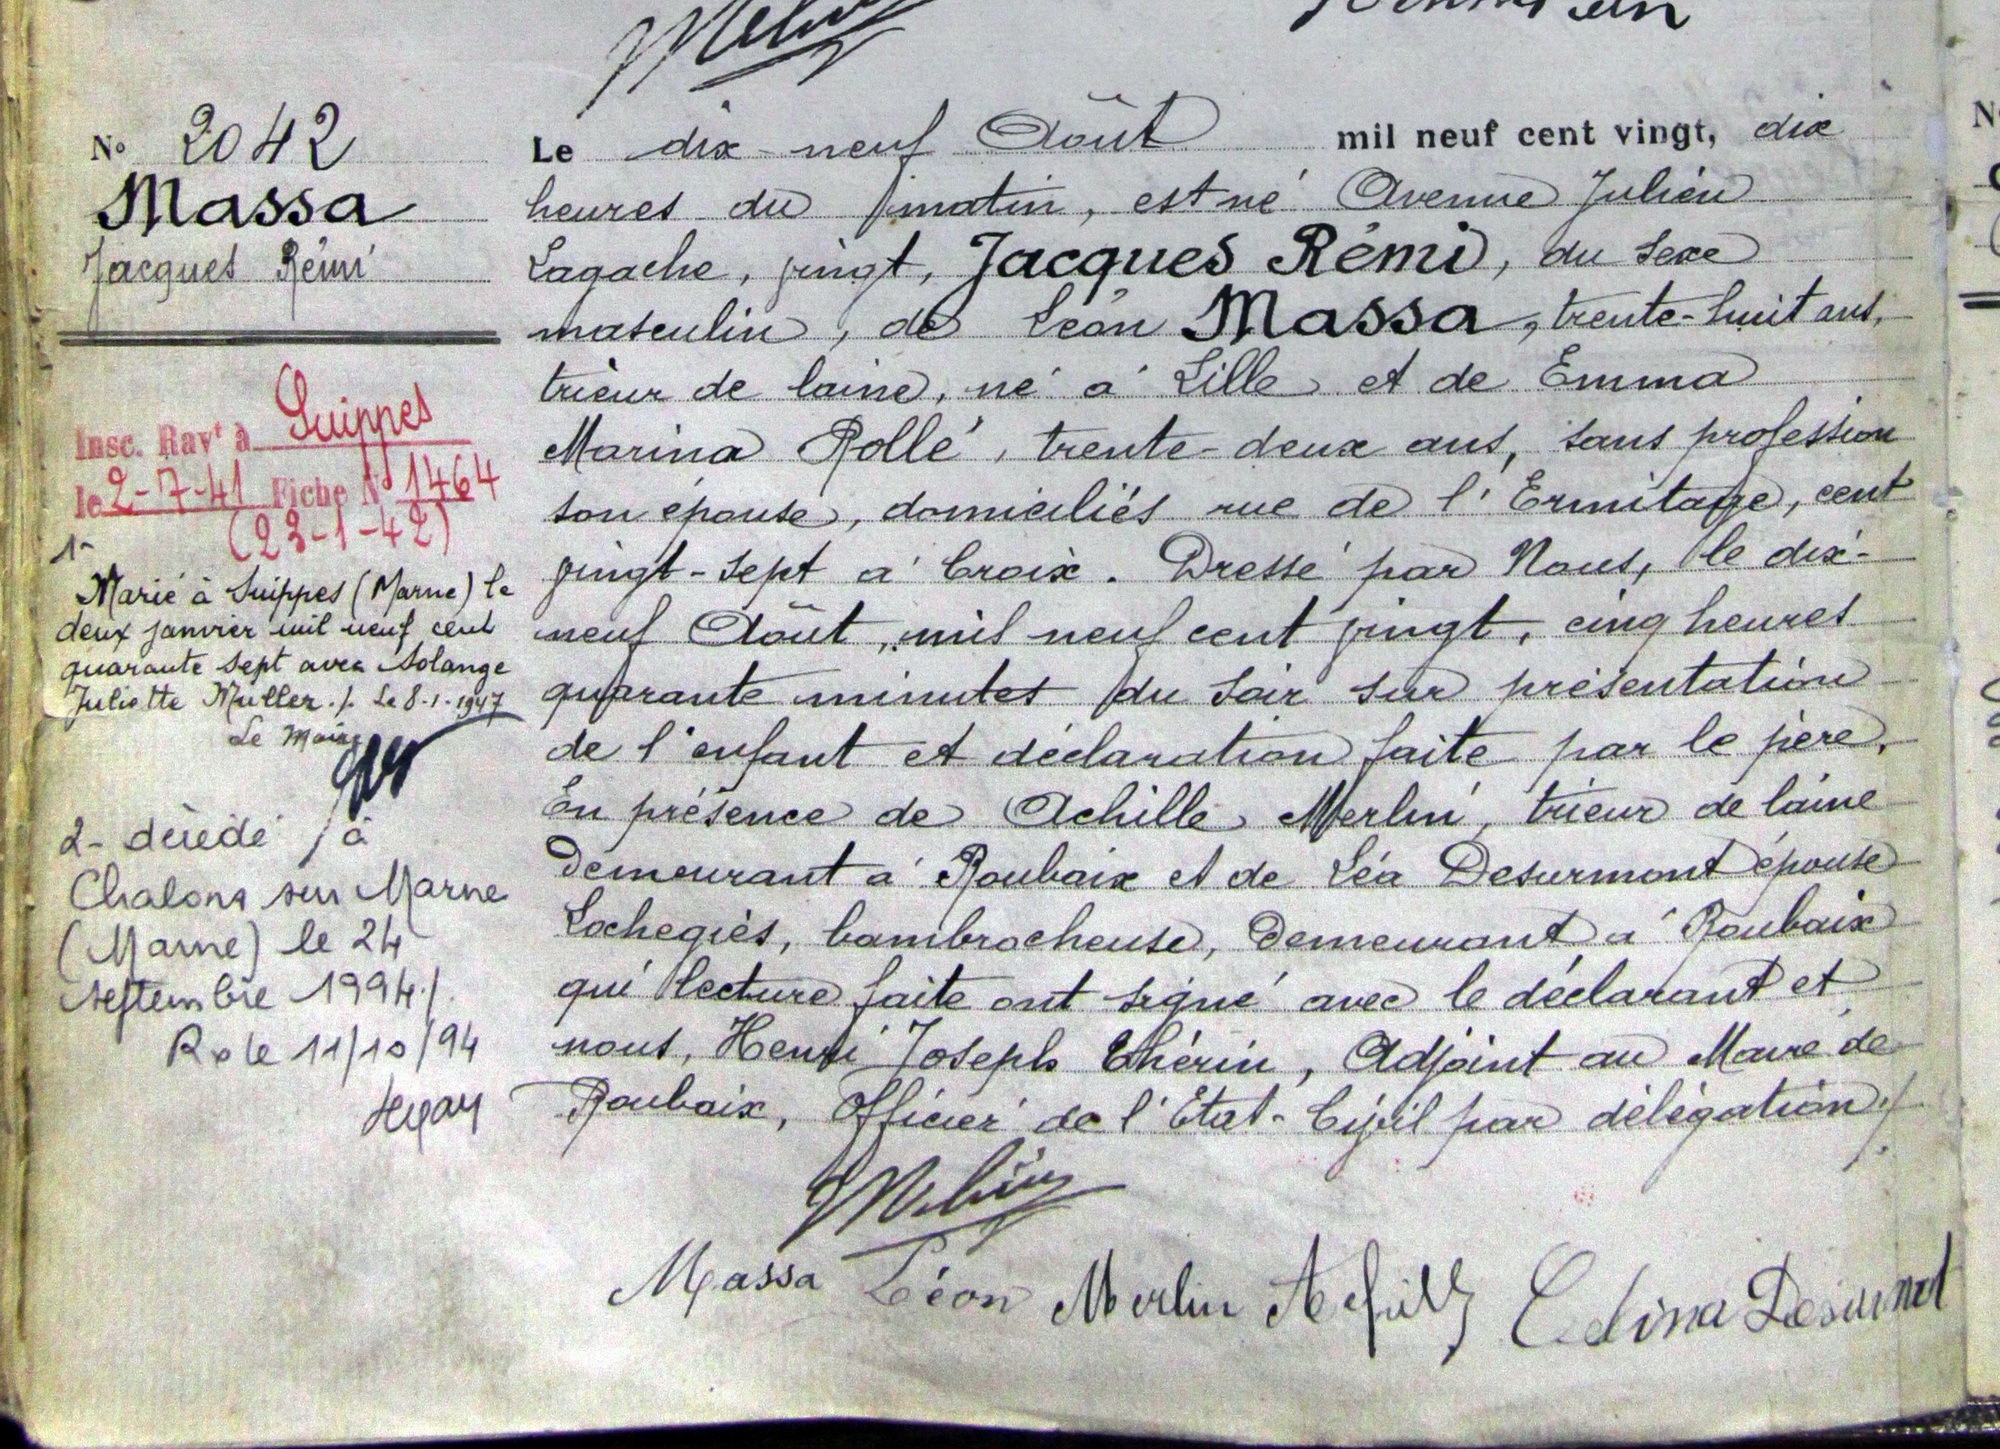 No 2042
Massa
Jacques Rémi
Insc. Rav^t à Suippes
le 2-7-41 Fiche N° 1464
(23-1-42)
1-
Marié à Suippes (Marne) le
deux janvier mil neuf cent
quarante sept avec Solange
Juliette Muller ./. Le 8-1-1947
Le Maire
2- décédé à
Chalons sur Marne
(Marne) le 24
septembre 1994 ./.
Rx le 11/10/94
Le dix-neuf Août mil neuf cent vingt, dix
heures du matin, est né Avenue Julien
Lagache, vingt, Jacques Rémi, du sexe
masculin, de Léon Massa, trente-huit ans,
trieur de laine, né à Lille et de Emma
Marina Rollé, trente-deux ans, sans profession
son épouse, domiciliés rue de l'Ermitage, cent
vingt-sept à Croix. Dressé par Nous, le dix-
neuf Août, mil neuf cent vingt, cinq heures
quarante minutes du soir sur présentation
de l'enfant et déclaration faite par le père.
En présence de Achille Merlin, trieur de laine
demeurant à Roubaix et de Léa Desurmont épouse
Lochegiès, bambrocheuse, demeurant à Roubaix
qui lecture faite ont signé avec le déclarant et
nous, Henri Joseph Thérin, Adjoint au Maire de
Roubaix, Officier de l'Etat-Civil par délégation ./.
Massa Léon Merlin Achille